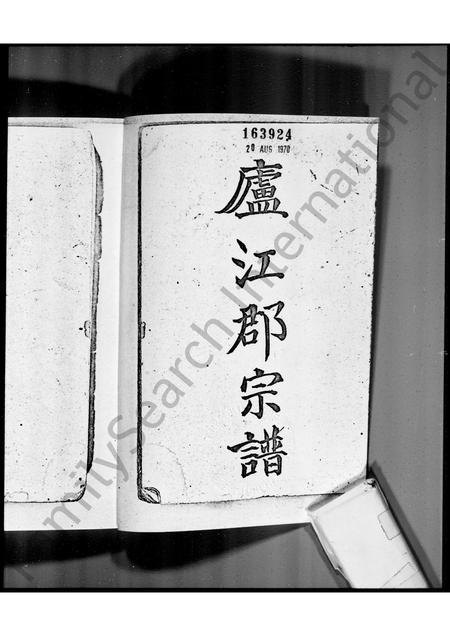 163924
20 AUG 1970
廬江郡宗譜
FamilySearch International